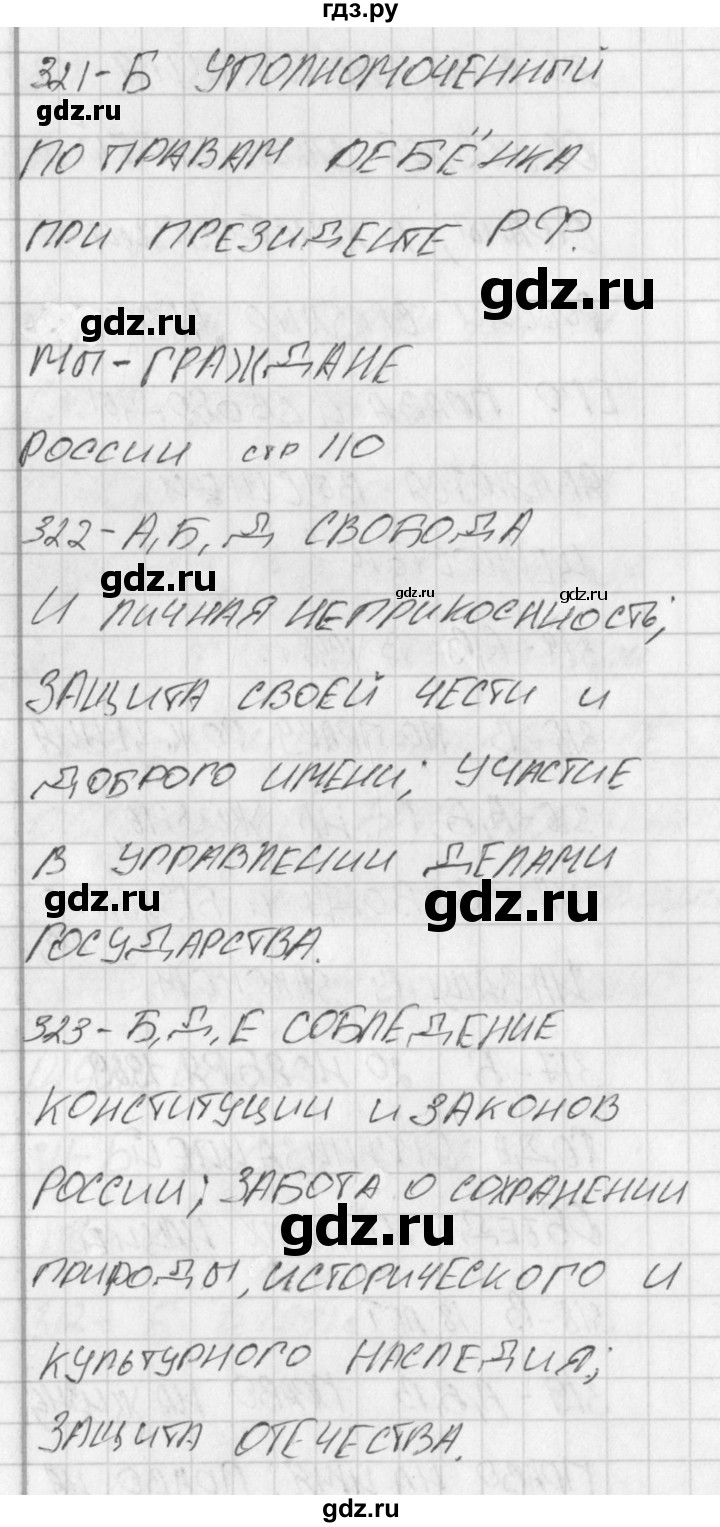 гдз.ру
321-Б УПОЛНОМОЧЕННЫЙ
gdz.ru
ПО ПРАВАМ РЕБЁНКА
ПРИ ПРЕЗИДЕНТЕ РФ.
gdz.ru
gdz.ru
МЫ-ГРАЖДАНЕ
РОССИИ стр 110
322-А,Б,Д СВОБОДА
gdz.ru
gdz.ru
gdz.ru
И ЛИЧНАЯ НЕПРИКОСННОСТЬ;
ЗАЩИТА СВОЕЙ ЧЕСТИ И
ДОБРОГО ИМЕНИ; УЧАСТИЕ
В УПРАВЛЕНИИ ДЕЛАМИ
gdz.ru
gdz.ru
ГОСУДАРСТВА.
323-Б,Д,Е СОБЛЕДЕНИЕ
КОНСТИТУЦИИ И ЗАКОНОВ
РОССИИ; ЗАБОТА О СОХРАНЕНИИ
gdz.ru
ПРИРОДЫ, ИСТОРИЧЕСКОГО И
КУЛЬТУРНОГО НАСЛЕДИЯ;
ЗАЩИТА ОТЕЧЕСТВА.
gdz.ru